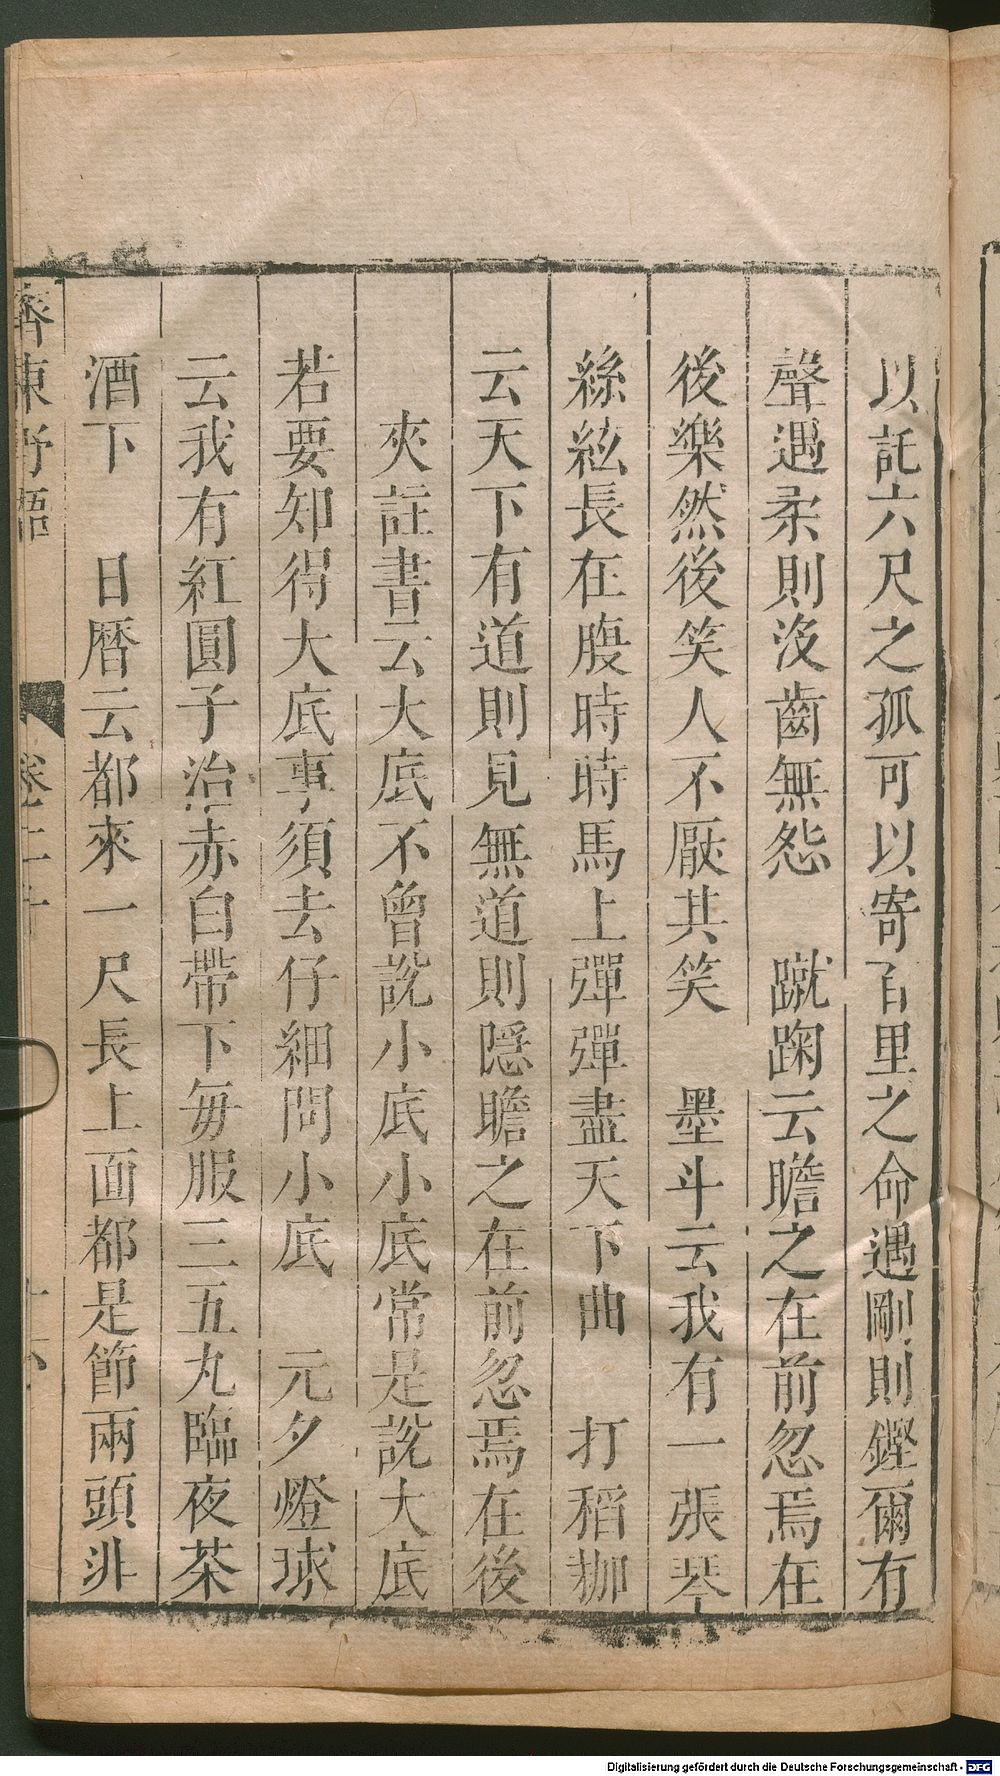 以託六尺之孤可以寄百里之命遇剛則鏗爾有
聲遇柔則沒齒無怨　蹴踘云瞻之在前忽焉在
後樂然後笑人不厭其笑　墨斗云我有一張琴
絲絃長在腹時時馬上彈彈盡天下曲　打稻枷
云天下有道則見無道則隱瞻之在前忽焉在後
夾註書云大底不曾說小底小底常是說大底
若要知得大底事須去仔細問小底　元夕燈球
云我有紅圓子治赤白帶下每服三五丸臨夜茶
酒下　日曆云都來一尺長上面都是節兩頭非
齊東野語　卷二十
Digitalisierung gefördert durch die Deutsche Forschungsgemeinschaft - DFG